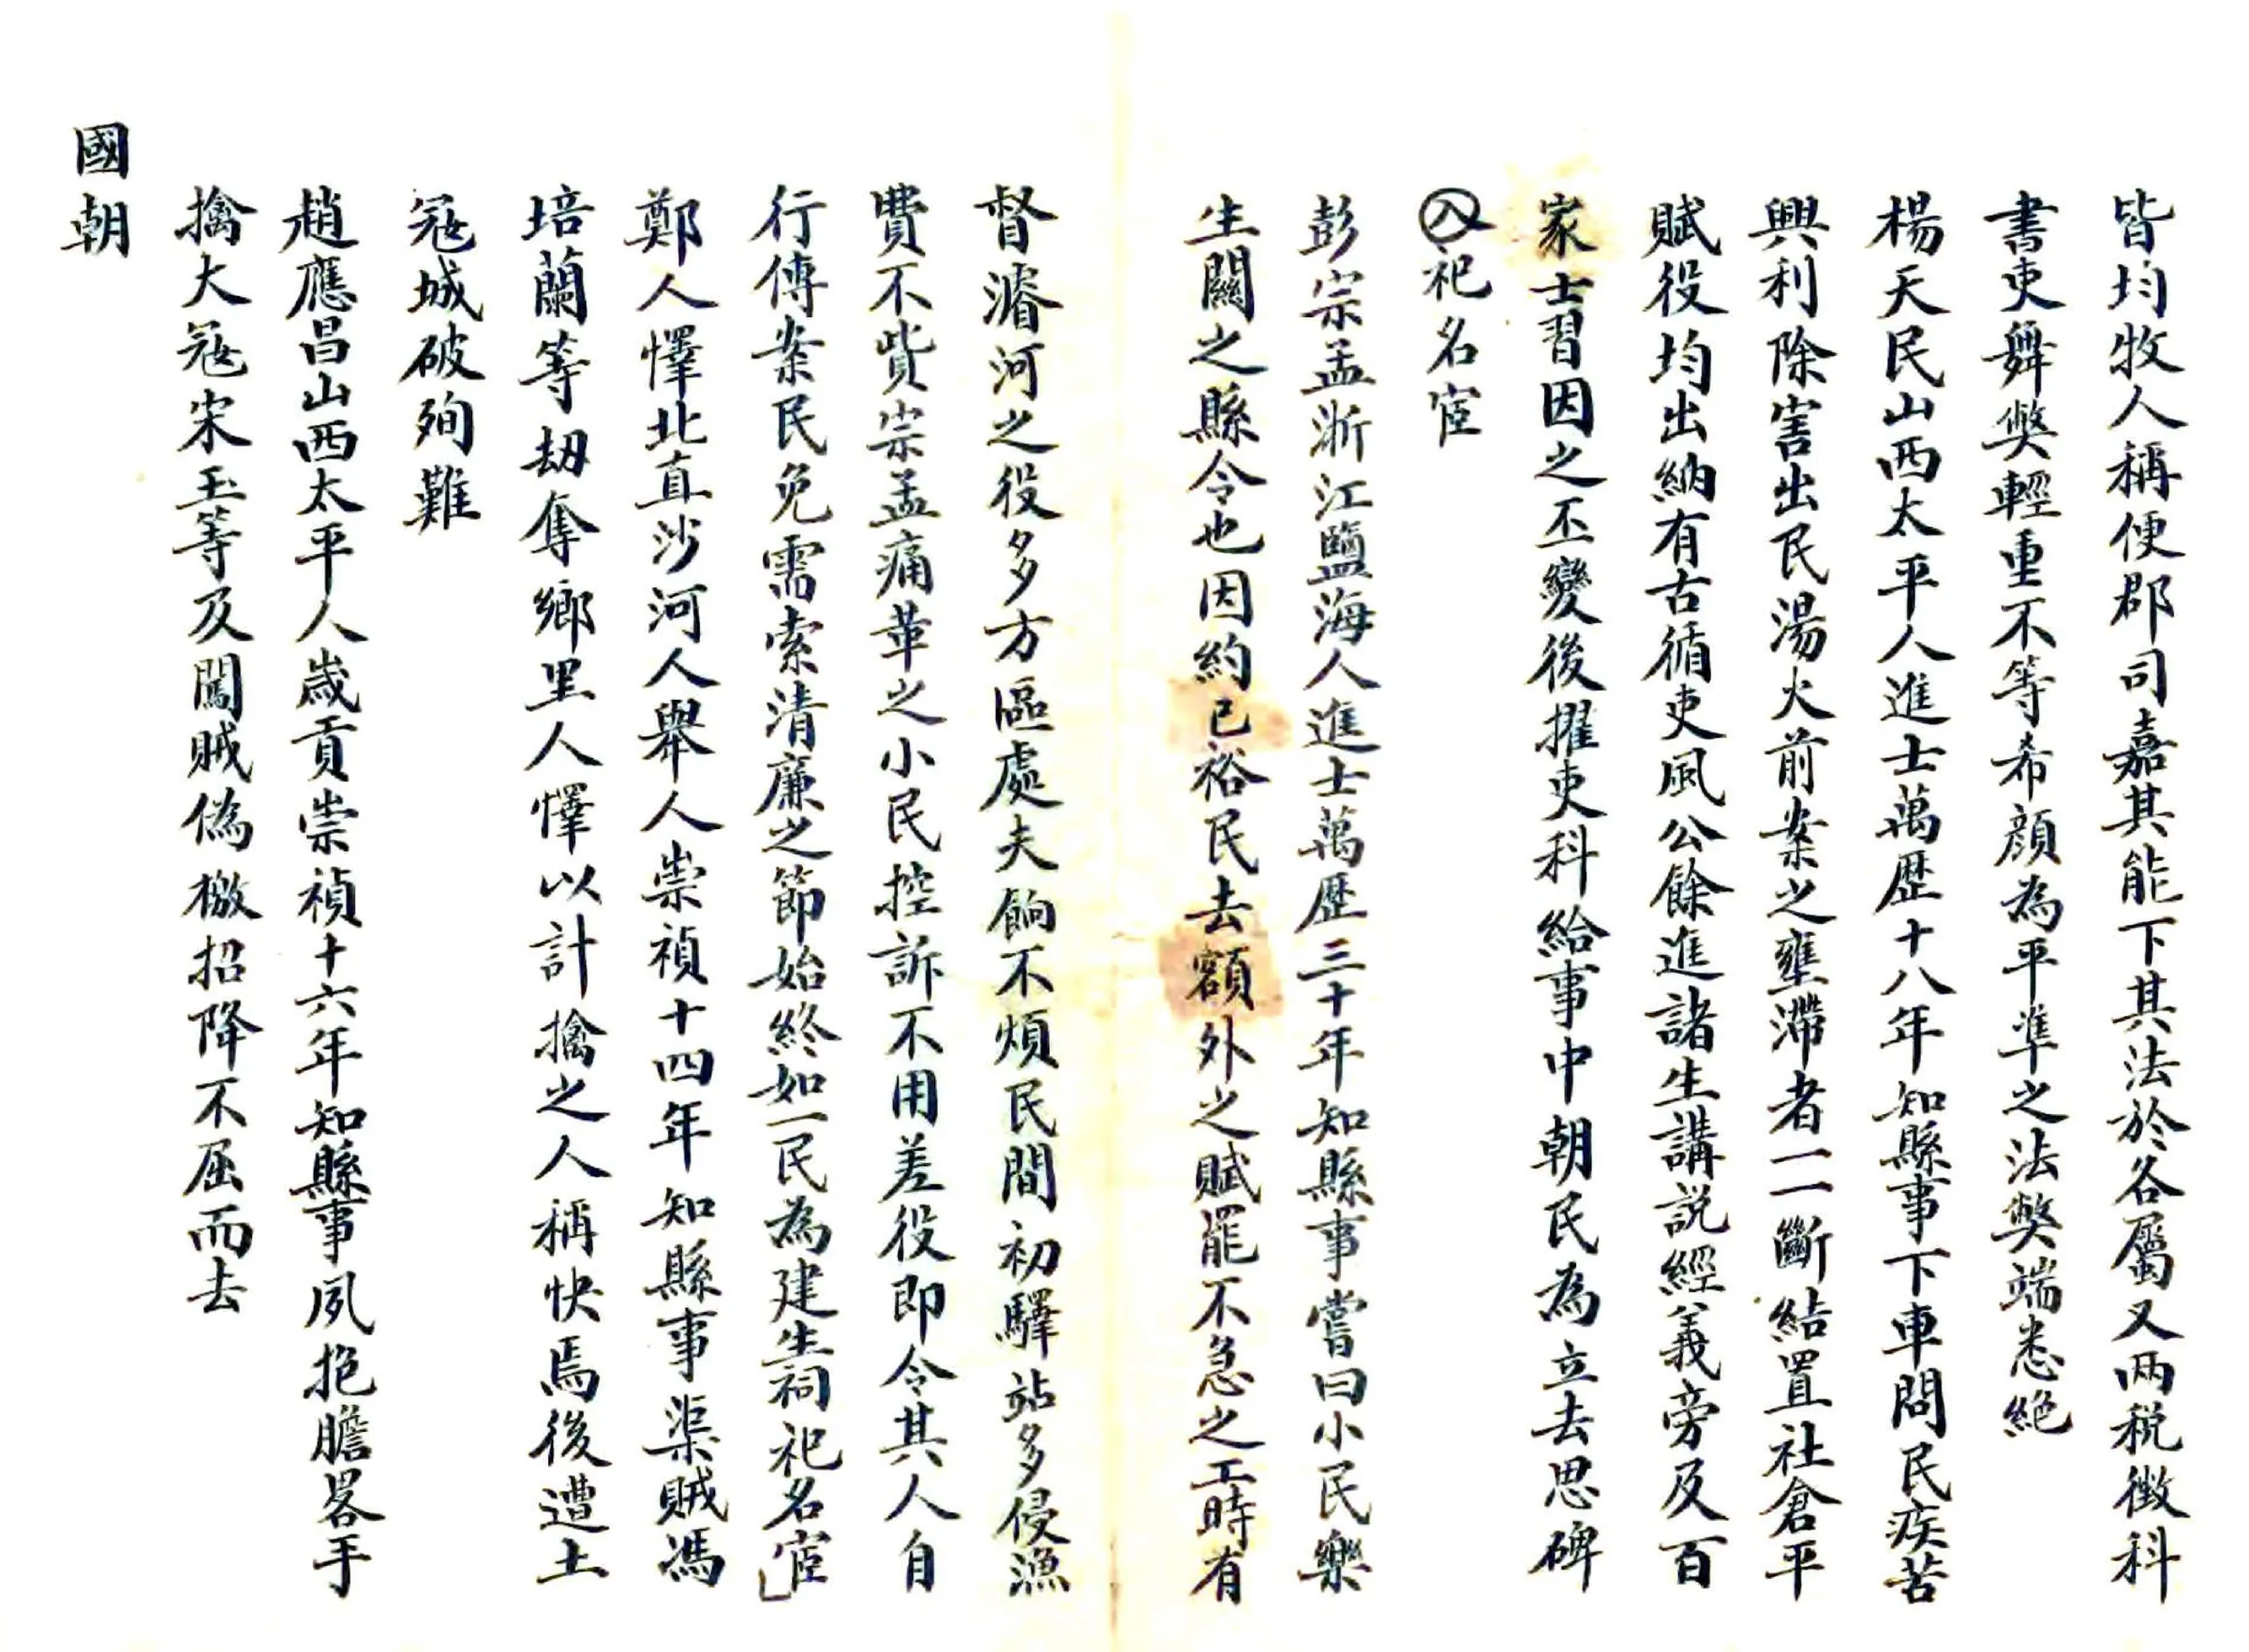 皆均牧人稱便郡司嘉其能下其法於各屬又兩稅徵科
書吏舞獘輕重不等希顏為平準之法獘端悉絕
楊天民山西太平人進士萬歷十八年知縣事下車問民疾苦
興利除害出民湯火前案之壅滯者一一斷結置社倉平
賦役均出納有古循吏風公餘進諸生講說經義旁及百
家士習因之丕變後擢吏科給事中朝民為立去思碑
入祀名宦
彭宗孟浙江鹽海人進士萬歷三十年知縣事嘗曰小民樂
生關之縣令也因約已裕民去額外之賦罷不急之工時有
督濬河之役多方區處夫餉不煩民間初驛站多侵漁
費不貲宗孟痛革之小民控訴不用差役即令其人自
行傳案民免需索清廉之節始終如一民為建生祠祀名宦
鄭人懌北直沙河人舉人崇禎十四年知縣事渠賊馮
培蘭等刼奪鄉里人懌以計擒之人稱快焉後遭土
冦城破殉難
趙應昌山西太平人歲貢崇禎十六年知縣事夙抱膽畧手
擒大冦宋玉等及闖賊偽檄招降不屈而去
國朝